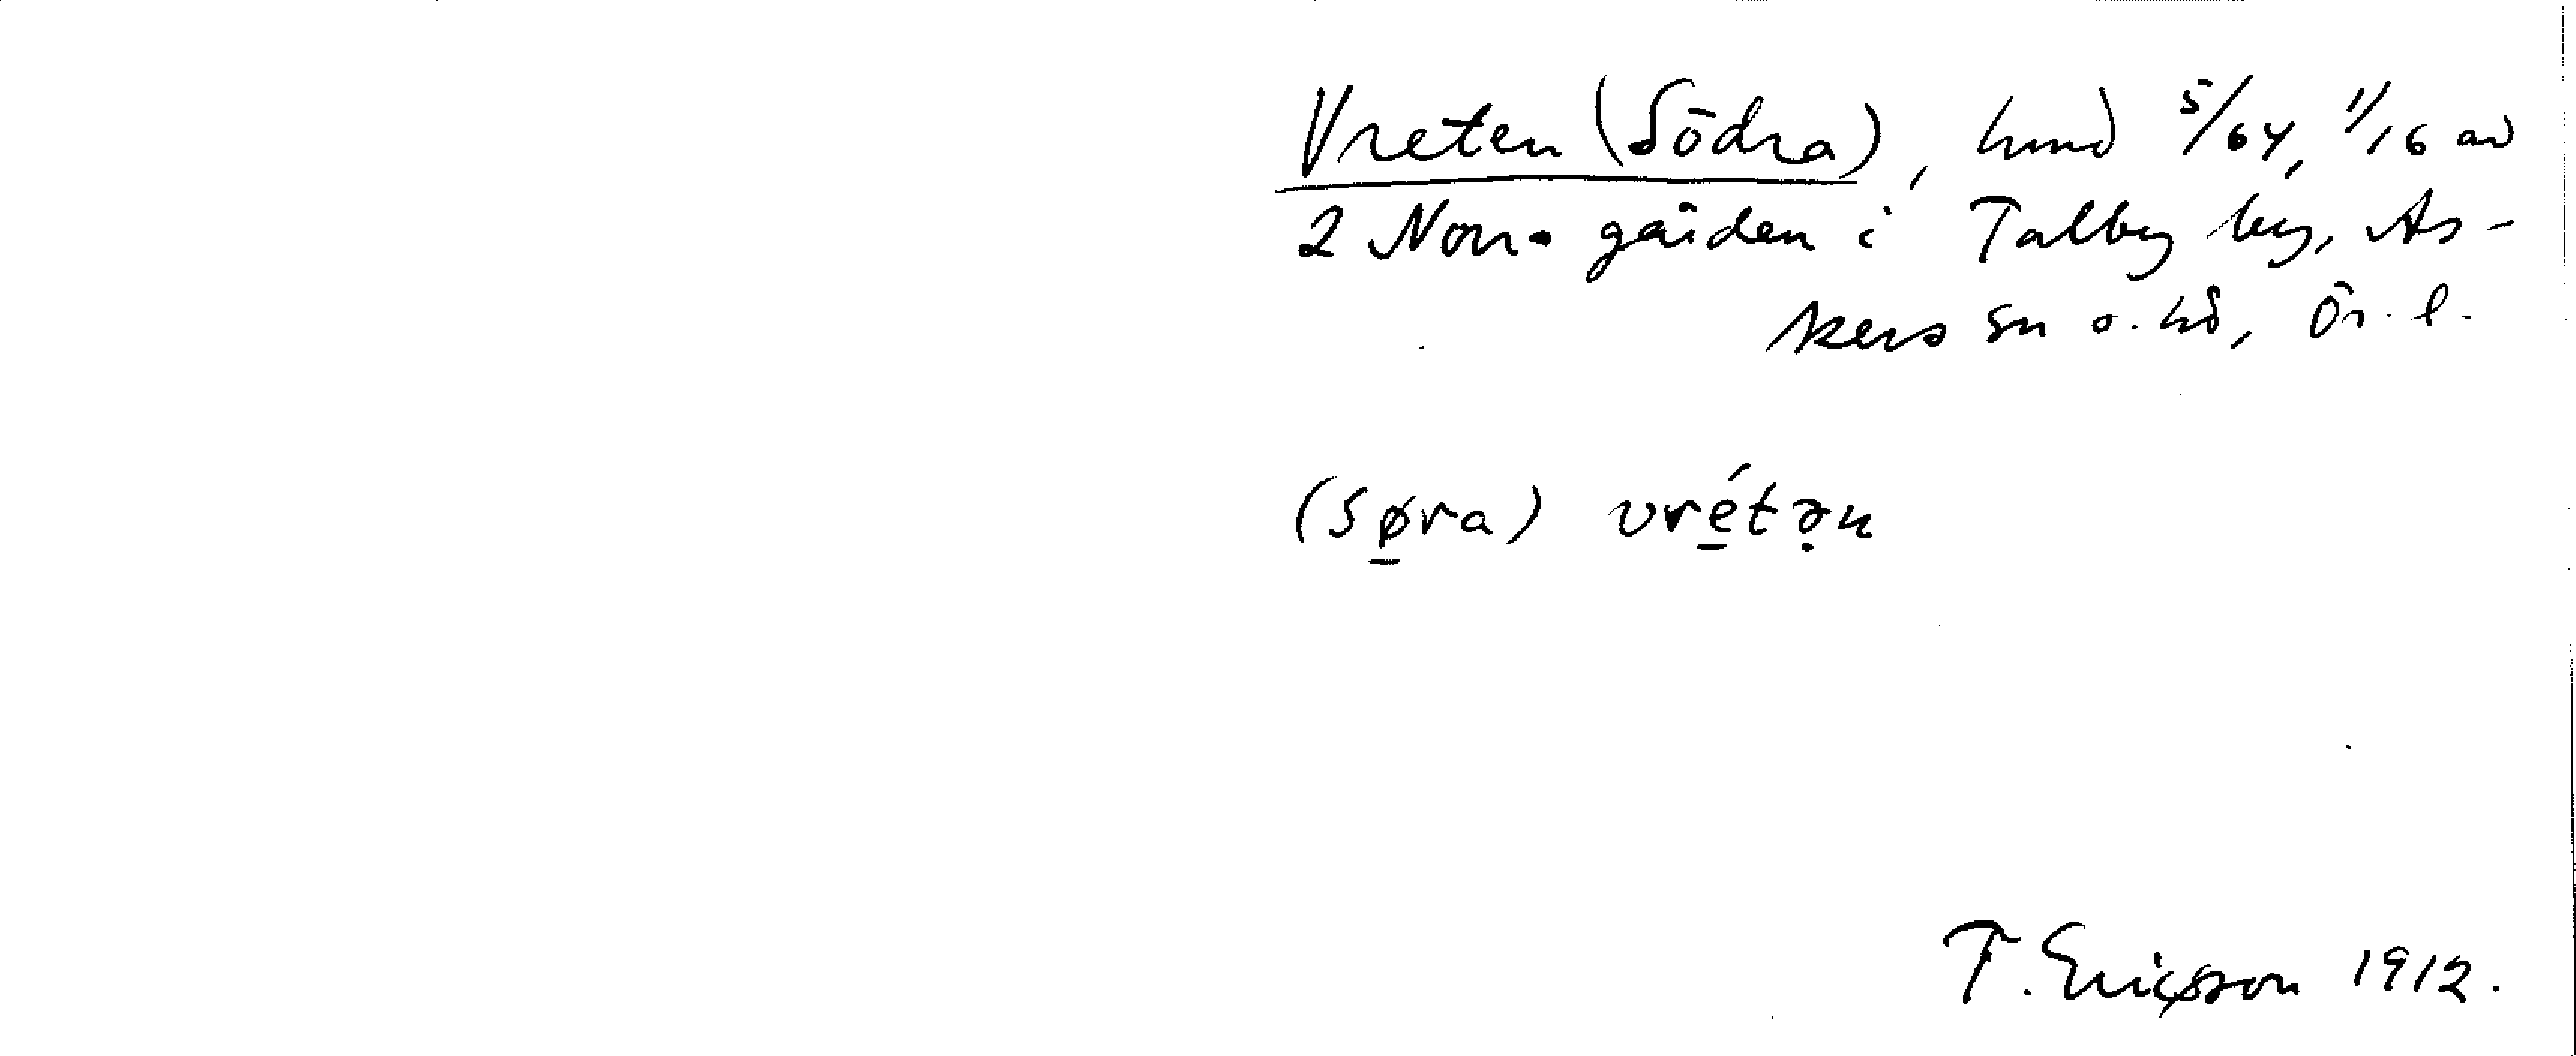 Vreten (Södra), hmd 5/64, 1/16 av
2 Norrgården i Talby by, As-
kers sn o. hd, Ör. l.
(sø̱ra) vré̱tə̣n
T. Ericsson 1912.